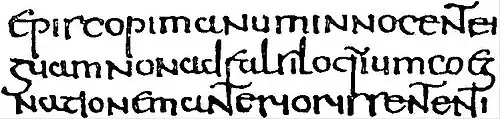 episcopi manum innocentei
guam non ad falsiloquium coeg
nationem anterioris sententi